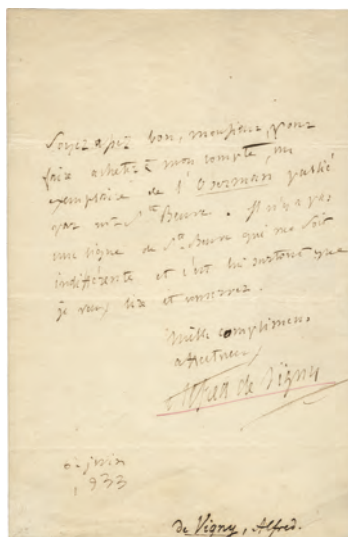 Soyez assez bon, monsieur, pour
faire acheter à mon compte, un
exemplaire de l'Oberman publié
par mr Ste Beuve. Il n'y a pas
une ligne de Ste Beuve qui me soit
indifférente et c'est lui surtout que
je veux lire et conserver.
Mille complimens
affectueux
Alfred de Vigny
juin
1833
de Vigny, Alfred.